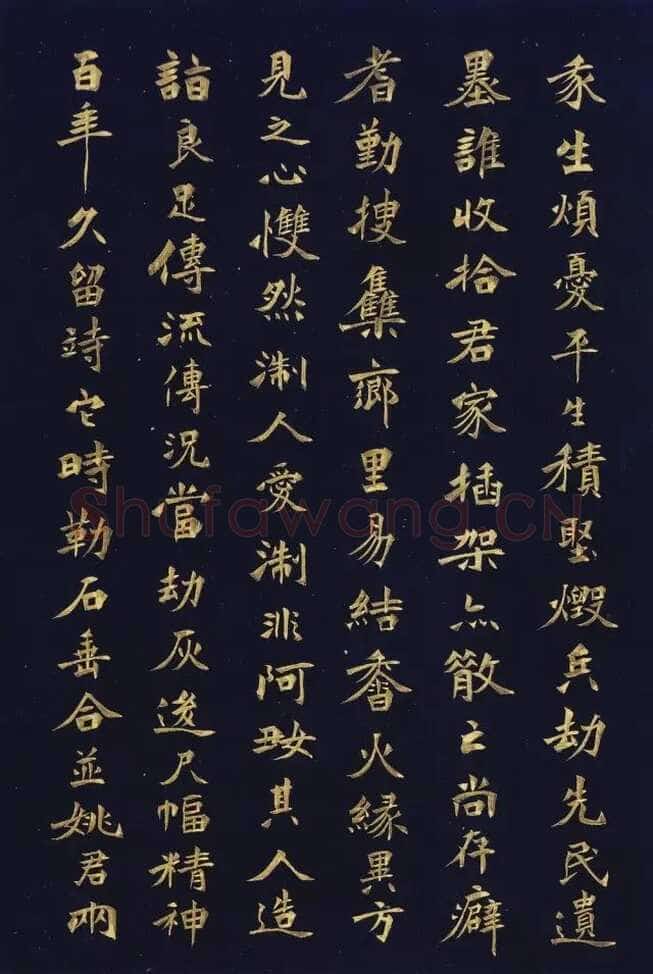 生煩憂平生積埾燬兵劫先民遺
墨誰收拾君家插架亦散亡尚存癖
耆勤搜雧鄉里易結香火緣異方
見之心愯然淛人愛淛非阿好其人造
詣良足傳流傳況當劫灰後尺幅精神
百年久留待它時勒石垂合並姚君兩
Shufawang.CN